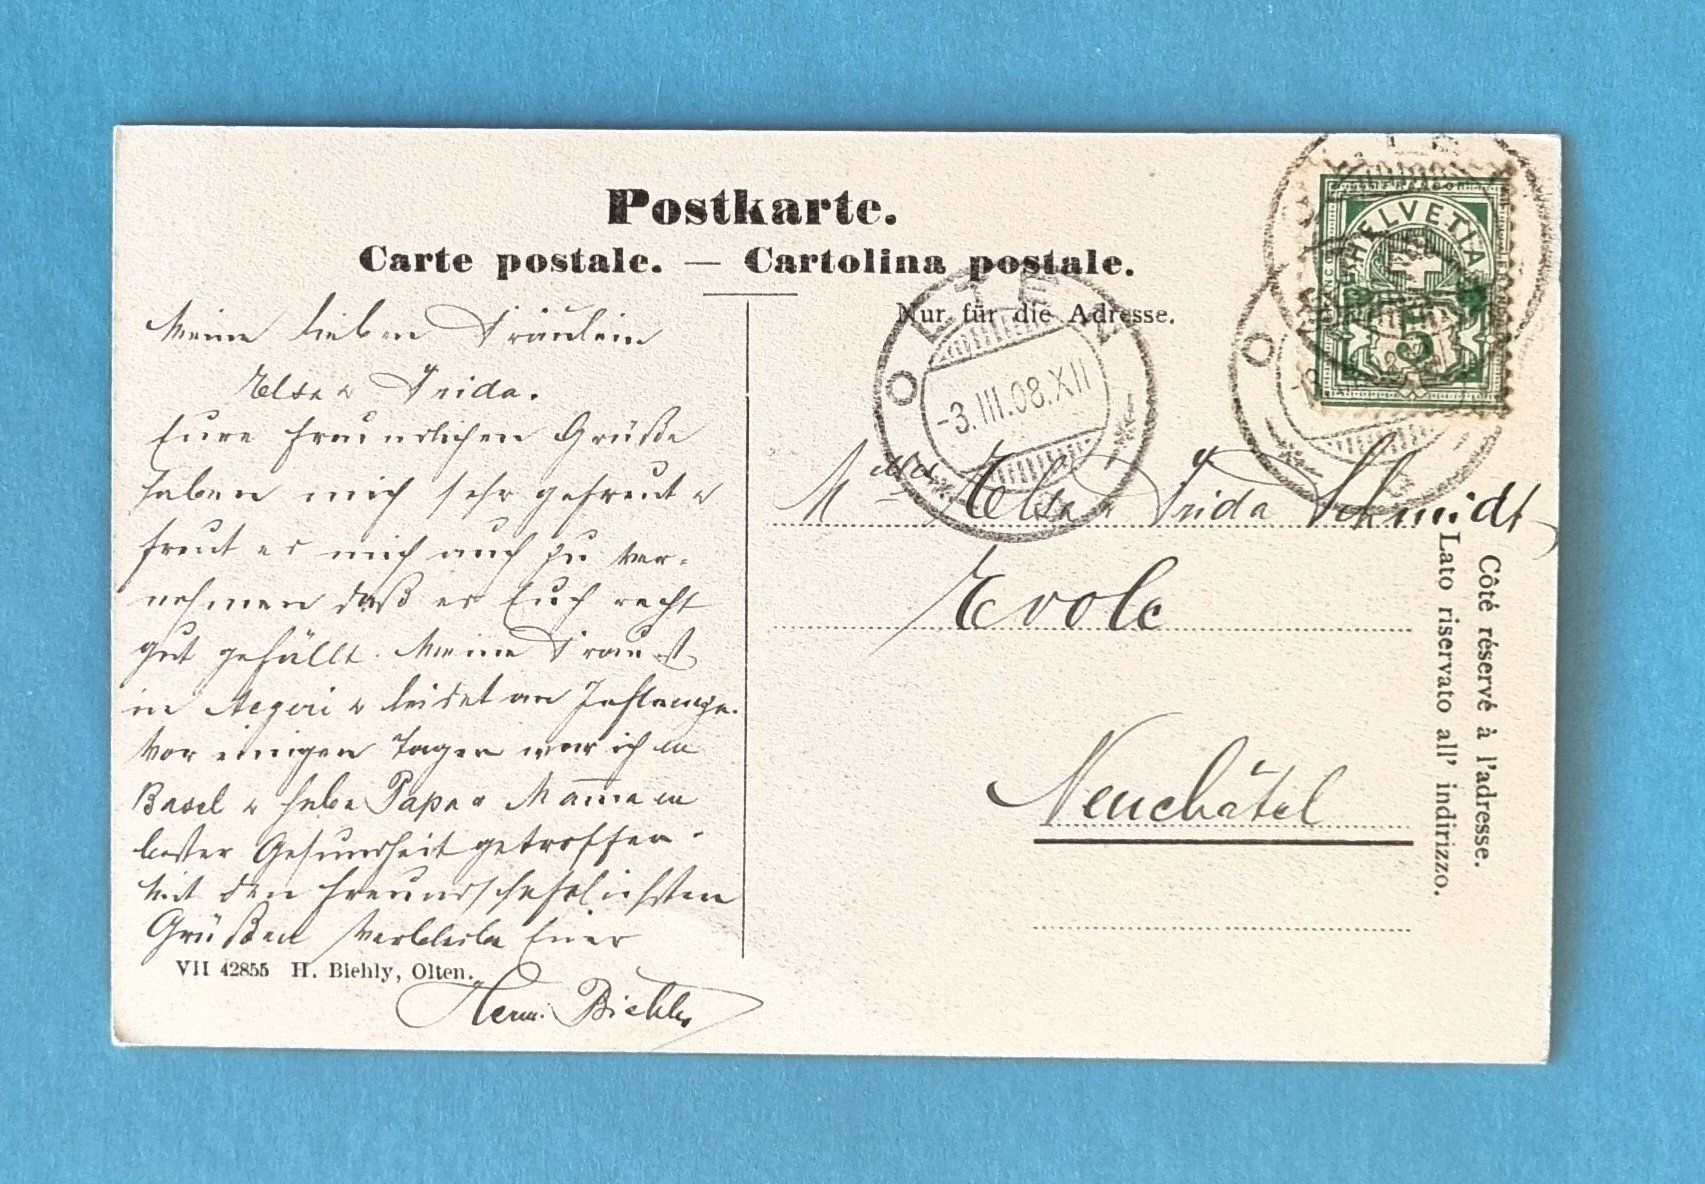 Postkarte.
Carte postale. — Cartolina postale.
Nur für die Adresse.
Meine lieben Fräulein
Elsa & Frida.
Eure freundlichen Grüße
haben mich sehr gefreut &
freut es mich auch zu ver-
nehmen daß es Euch recht
gut gefällt. Meine Frau ist
in Aegeri & leidet an
Vor einigen Tagen war ich in
Basel & habe Papa & Mama in
bester Gesundheit getroffen.
Mit den freundschaftlichsten
Grüßen verbleibe Euer
Herm. Biehly
VII 42855 H. Biehly, Olten.
OLTEN
-3.III.08.XII
HELVETIA
5
Elsa & Frida Schmidt
Evole
Neuchâtel
Côté réservé à l'adresse.
Lato riservato all' indirizzo.